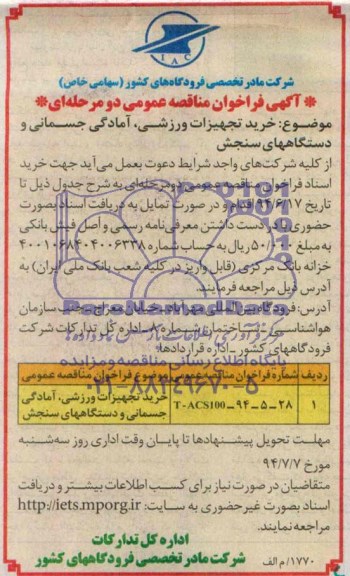 IAC
شرکت مادر تخصصی فرودگاه‌های کشور (سهامی خاص)
* آگهی فراخوان مناقصه عمومی دو مرحله‌ای *
موضوع: خرید تجهیزات ورزشی، آمادگی جسمانی و
دستگاههای سنجش
از کلیه شرکت‌های واجد شرایط دعوت بعمل می‌آید جهت خرید
اسناد فراخوان مناقصه عمومی دومرحله‌ای به شرح جدول ذیل تا
تاریخ ۹۴/۶/۱۷ اقدام و در صورت تمایل به دریافت اسناد بصورت
حضوری با در دست داشتن معرفی‌نامه رسمی و اصل فیش بانکی
به مبلغ ۵۰/۰۱۰ ریال به حساب شماره ۴۰۰۱۰۶۸۴۰۴۰۰۶۳۳۸
خزانه بانک مرکزی (قابل واریز در کلیه شعب بانک ملی ایران) به
آدرس ذیل مراجعه فرمایند.
آدرس: فرودگاه بین‌المللی مهرآباد، خیابان معراج، جنب سازمان
هواشناسی، ساختمان شماره ۸، اداره کل تدارکات شرکت
فرودگاههای کشور، اداره قراردادها
ParsNamadData
پایگاه اطلاع رسانی مناقصه و مزایده
۰۲۱-۸۸۳۴۹۶۷۰-۵
ردیف شماره فراخوان مناقصه عمومی موضوع فراخوان مناقصه عمومی
۱ T-ACS100-۹۴-۵-۲۸ خرید تجهیزات ورزشی، آمادگی
جسمانی و دستگاههای سنجش
مهلت تحویل پیشنهادها تا پایان وقت اداری روز سه‌شنبه
مورخ ۹۴/۷/۷
متقاضیان در صورت نیاز برای کسب اطلاعات بیشتر و دریافت
اسناد بصورت غیرحضوری به سایت: http://iets.mporg.ir
مراجعه نمایند.
اداره کل تدارکات
شرکت مادر تخصصی فرودگاههای کشور
۱۷۷۰/م الف